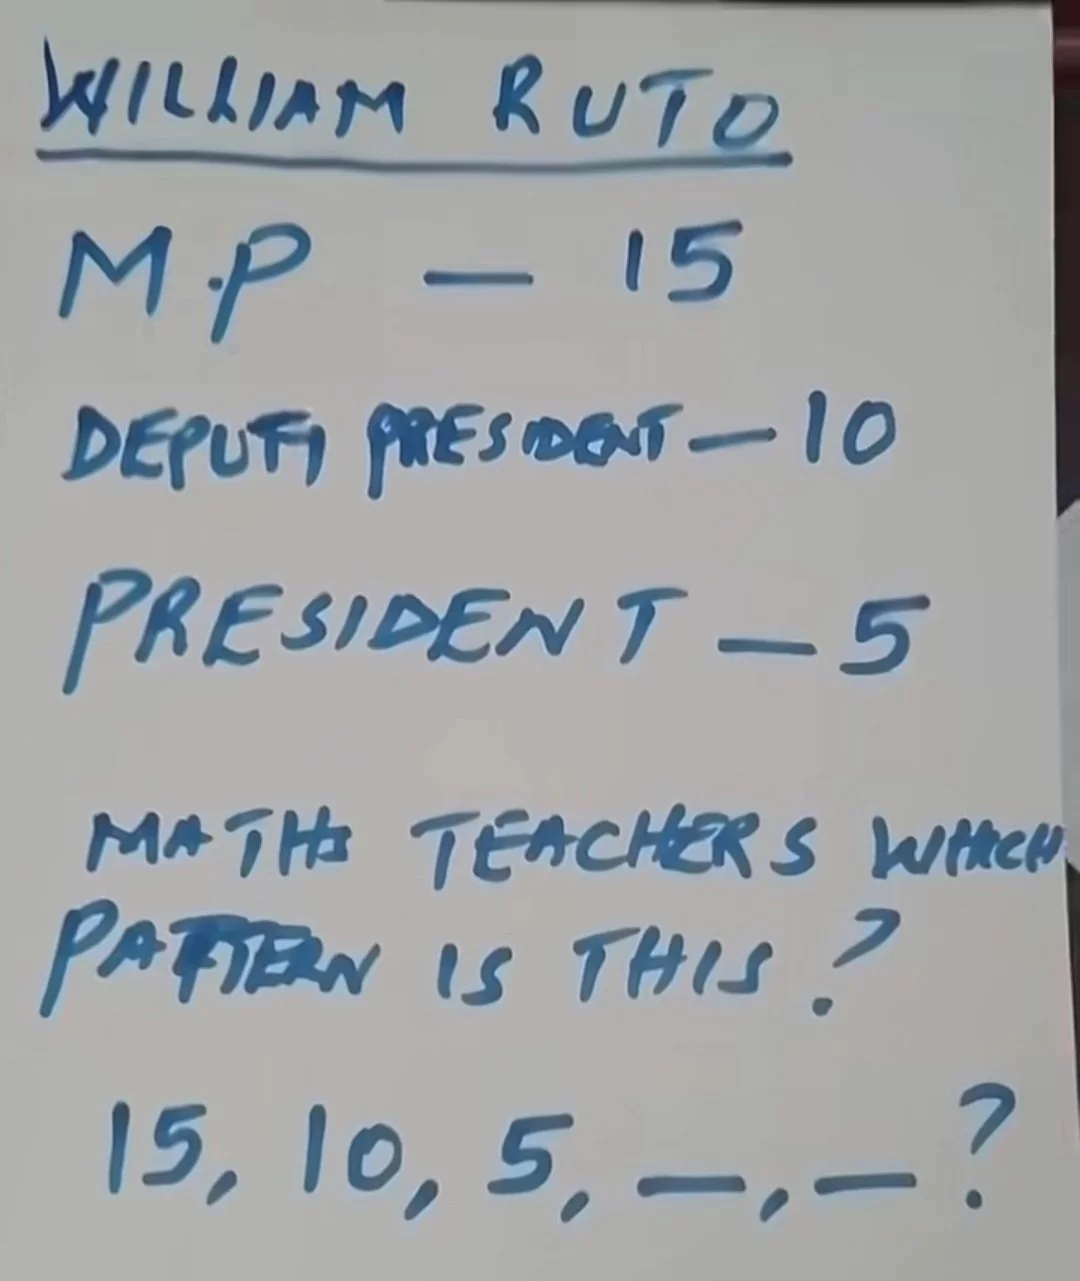 WILLIAM RUTO
M.P — 15
DEPUTY PRESIDENT — 10
PRESIDENT — 5
MATHS TEACHERS WHICH
PATTERN IS THIS?
15, 10, 5, —, — ?